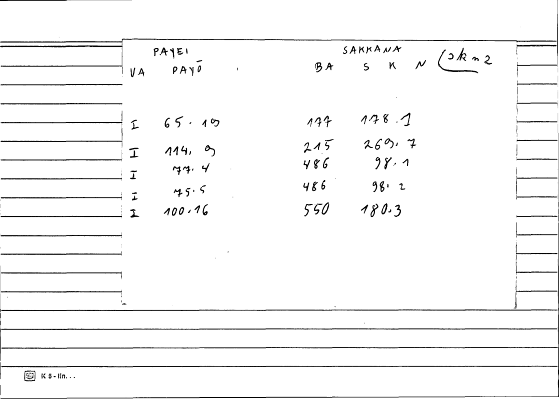 PAYEI SAKKANA
VA PAYŌ BA S K N
I 65.19 177 178.1
I 114.9 215 269.7
I 77.4 486 98.1
I 75.5 486 98.2
I 100.16 550 180.3
K 8 -